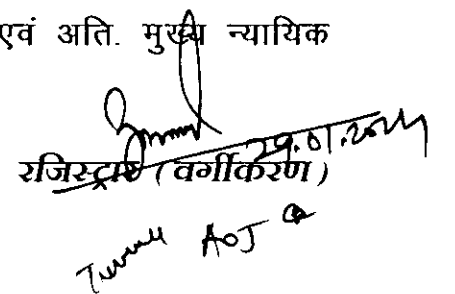 एवं अति. मुख्य न्यायिक
29.01.2024
रजिस्ट्रार (वर्गीकरण)
AOJ